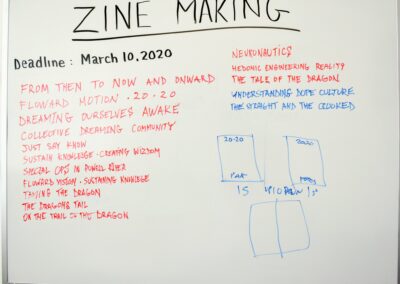 ZINE MAKING
Deadline: March 10, 2020
FROM THEM TO NOW AND ONWARD
FLOWARD MOTION · 20 · 20
DREAMING OURSELVES AWAKE
COLLECTIVE DREAMING COMMUNITY
JUST SAY KNOW
SUSTAIN KNOWLEDGE · CREATING WIZDOM
SPECIAL OPS IN POWER
FLOWARD VISION · SUSTAINING KNOWLEGE
THE DRAGON
THE DRAGONS TAIL
ON THE TRAIL OF THE DRAGON
NEURONAUTICS
HEDONIC ENGINEERING REALITY
THE TALE OF THE DRAGON
UNDERSTANDING DOPE CULTURE
THE STRAIGHT AND THE CROOKED
20-20
2020